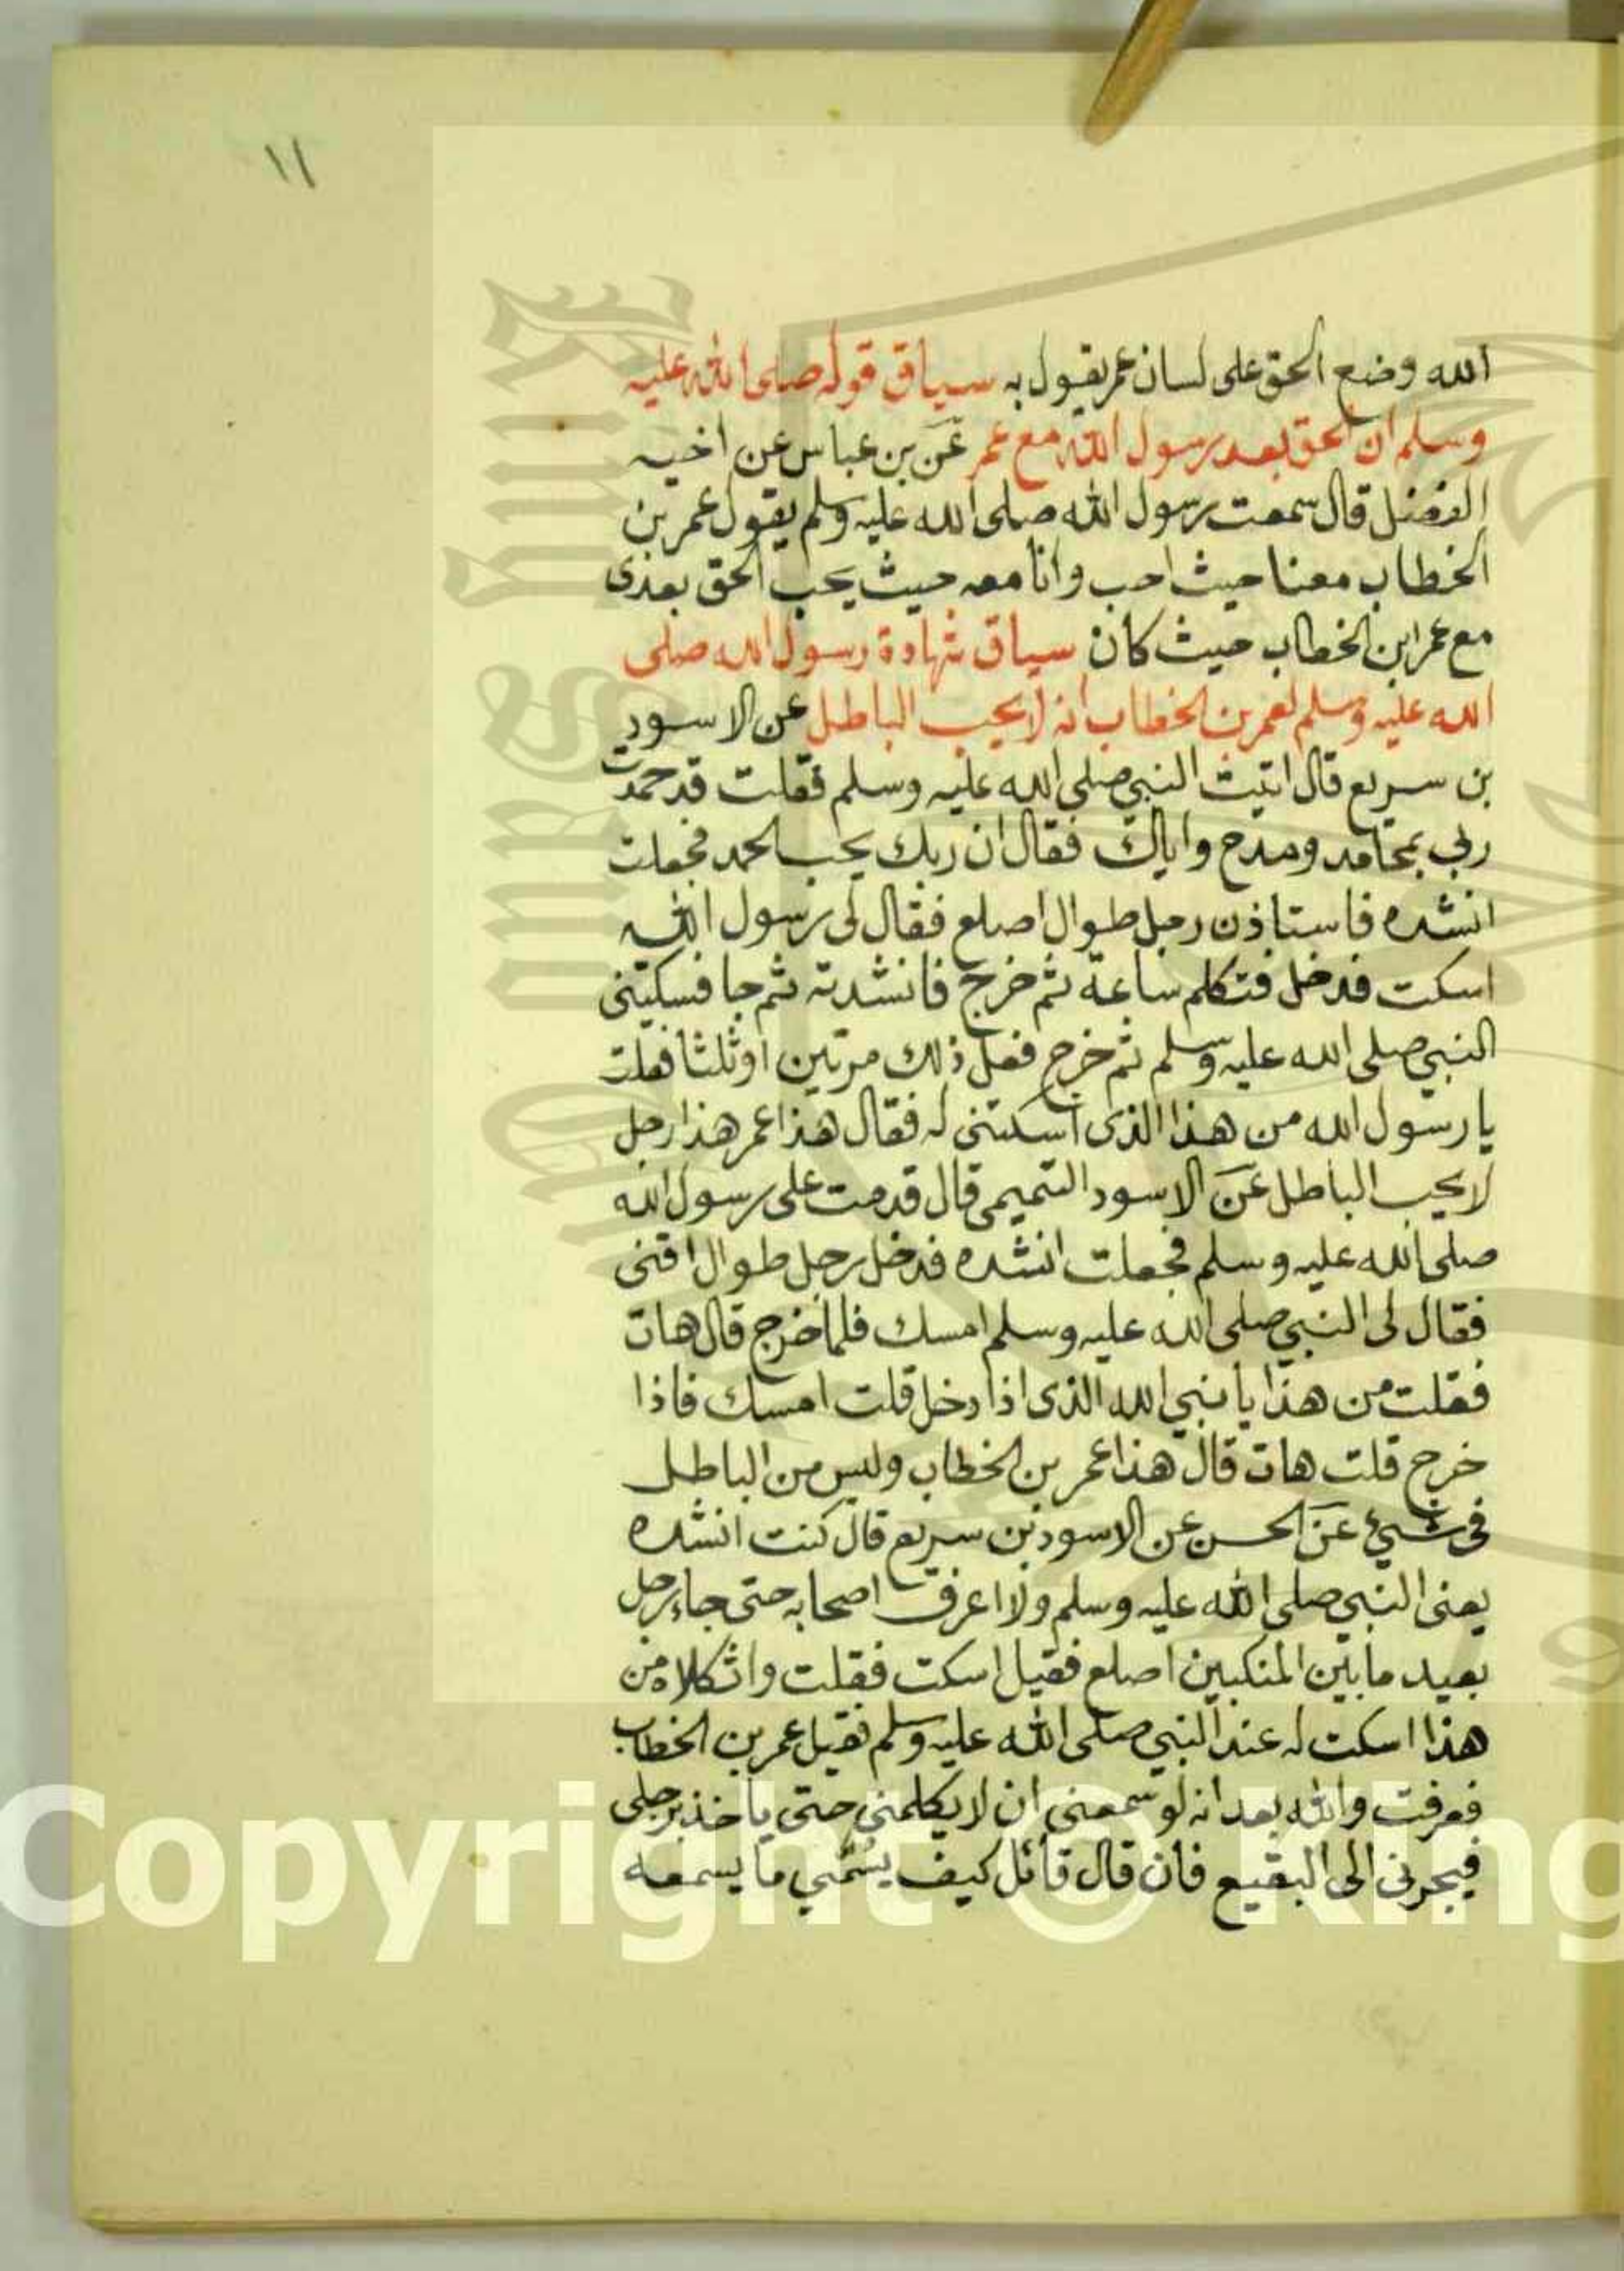 ١١
الله وضع الحق على لسان عمر يقول به سياق قوله صلى الله عليه
وسلم ان الحق بعد رسول الله مع عمر عن بن عباس عن اخيه
الفضل قال سمعت رسول الله صلى الله عليه وسلم يقول عمر بن
الخطاب معنا حيث احب وانا معه حيث يحب الحق بعدى
مع عمر ابن الخطاب حيث كان سياق شهادة رسول الله صلى
الله عليه وسلم لعمر بن الخطاب انه لا يحب الباطل عن الاسود
بن سريع قال اتيت النبي صلى الله عليه وسلم فقلت قد حمدت
ربي بمحامد ومدح واياك فقال ان ربك يحب الحمد فجعلت
انشده فاستاذن رجل طوال اصلع فقال لى رسول الله
اسكت فدخل فتكلم ساعة ثم خرج فانشدته ثم جا فسكتنى
النبي صلى الله عليه وسلم ثم خرج ففعل ذلك مرتين او ثلثا فقلت
يا رسول الله من هذا الذى اسكتنى له فقال هذا عمر هذا رجل
لا يحب الباطل عن الاسود التميمى قال قدمت على رسول الله
صلى الله عليه وسلم فجعلت انشده فدخل رجل طوال اقنى
فقال لى النبي صلى الله عليه وسلم امسك فلما خرج قال هات
فقلت من هذا يا نبي الله الذى اذا دخل قلت امسك فاذا
خرج قلت هات قال هذا عمر بن الخطاب وليس من الباطل
فى شيئ عن الحسن عن الاسود بن سريع قال كنت انشده
يعنى النبي صلى الله عليه وسلم ولا اعرف اصحابه حتى جاء رجل
بعيد ما بين المنكبين اصلع فقيل اسكت فقلت واثكلاه من
هذا اسكت له عند النبي صلى الله عليه وسلم فقيل عمر بن الخطاب
فعرفت والله بعد انه لو سمعنى ان لا يكلمنى حتى ياخذ برجلى
فيجرنى الى البقيع فان قال قائل كيف يسمي ما يسمعه
Copyright © King